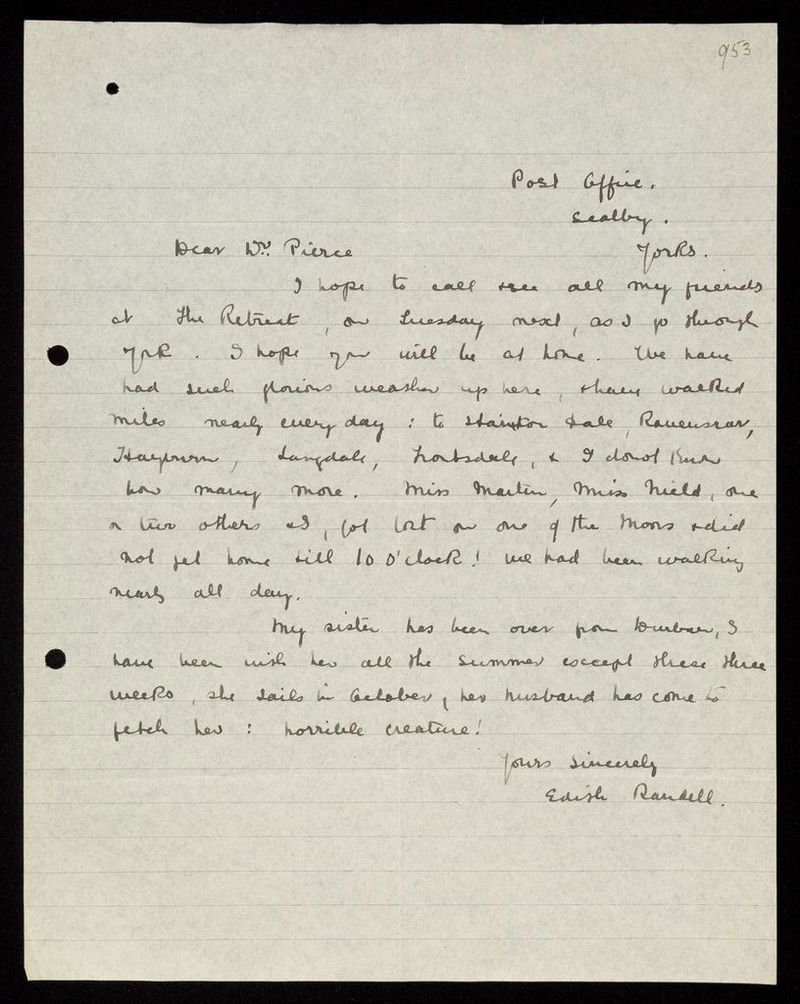 953
Post Office.
Scalby.
Dear Dr. Pierce
Yorks.
I hope to call & see all my friends
at The Retreat, on Tuesday next, as I go through
York. I hope you will be at home. We have
had such glorious weather up here, & have walked
miles nearly every day: to Stainton Dale, Ravenscar,
Hayburn, Langdale, Troutsdale, & I donot know
how many more. Miss Martin, Miss Nield, one
or two others & I, got lost on one of the Moors & did
not get home till 10 o'clock! we had been walking
nearly all day.
My sister has been over from Durban, I
have been with her all the summer except these three
weeks, she sails in October, her husband has come to
fetch her: horrible creature!
Yours sincerely
Edith Randell.